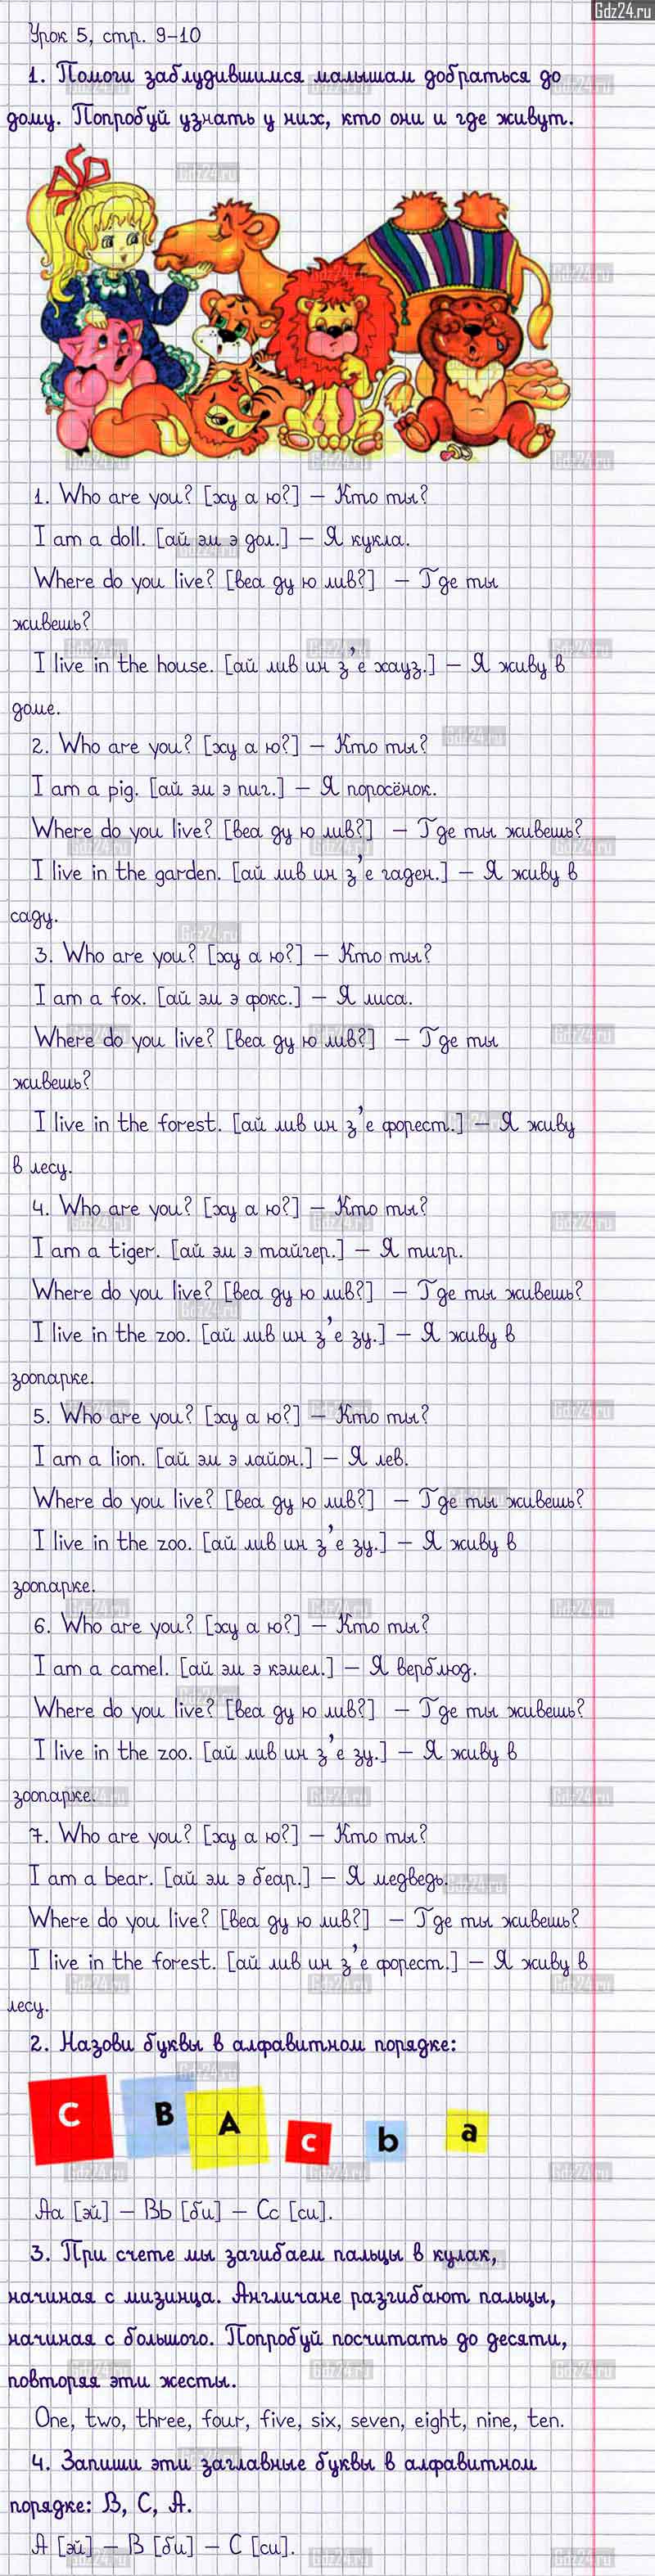 Gdz24.ru
Урок 5, стр. 9-10
1. Помоги заблудившимся малышам добраться до
дому. Попробуй узнать у них, кто они и где живут.
1. Who are you? [ху а ю?] – Кто ты?
I am a doll. [ай эм э дол.] – Я кукла.
Where do you live? [веа ду ю лив?] – Где ты
живешь?
I live in the house. [ай лив ин з'е хауз.] – Я живу в
доме.
2. Who are you? [ху а ю?] – Кто ты?
I am a pig. [ай эм э пиг.] – Я поросёнок.
Where do you live? [веа ду ю лив?] – Где ты живешь?
I live in the garden. [ай лив ин з'е гаден.] – Я живу в
саду.
3. Who are you? [ху а ю?] – Кто ты?
I am a fox. [ай эм э фокс.] – Я лиса.
Where do you live? [веа ду ю лив?] – Где ты
живешь?
I live in the forest. [ай лив ин з'е форест.] – Я живу
в лесу.
4. Who are you? [ху а ю?] – Кто ты?
I am a tiger. [ай эм э тайгер.] – Я тигр.
Where do you live? [веа ду ю лив?] – Где ты живешь?
I live in the zoo. [ай лив ин з'е зу.] – Я живу в
зоопарке.
5. Who are you? [ху а ю?] – Кто ты?
I am a lion. [ай эм э лайон.] – Я лев.
Where do you live? [веа ду ю лив?] – Где ты живешь?
I live in the zoo. [ай лив ин з'е зу.] – Я живу в
зоопарке.
6. Who are you? [ху а ю?] – Кто ты?
I am a camel. [ай эм э кэмел.] – Я верблюд.
Where do you live? [веа ду ю лив?] – Где ты живешь?
I live in the zoo. [ай лив ин з'е зу.] – Я живу в
зоопарке.
7. Who are you? [ху а ю?] – Кто ты?
I am a bear. [ай эм э беар.] – Я медведь.
Where do you live? [веа ду ю лив?] – Где ты живешь?
I live in the forest. [ай лив ин з'е форест.] – Я живу в
лесу.
2. Назови буквы в алфавитном порядке:
C B A c b a
Aa [эй] – Bb [би] – Cc [си].
3. При счете мы загибаем пальцы в кулак,
начиная с мизинца. Англичане разгибают пальцы,
начиная с большого. Попробуй посчитать до десяти,
повторяя эти жесты.
One, two, three, four, five, six, seven, eight, nine, ten.
4. Запиши эти заглавные буквы в алфавитном
порядке: B, C, A.
A [эй] – B [би] – C [си].